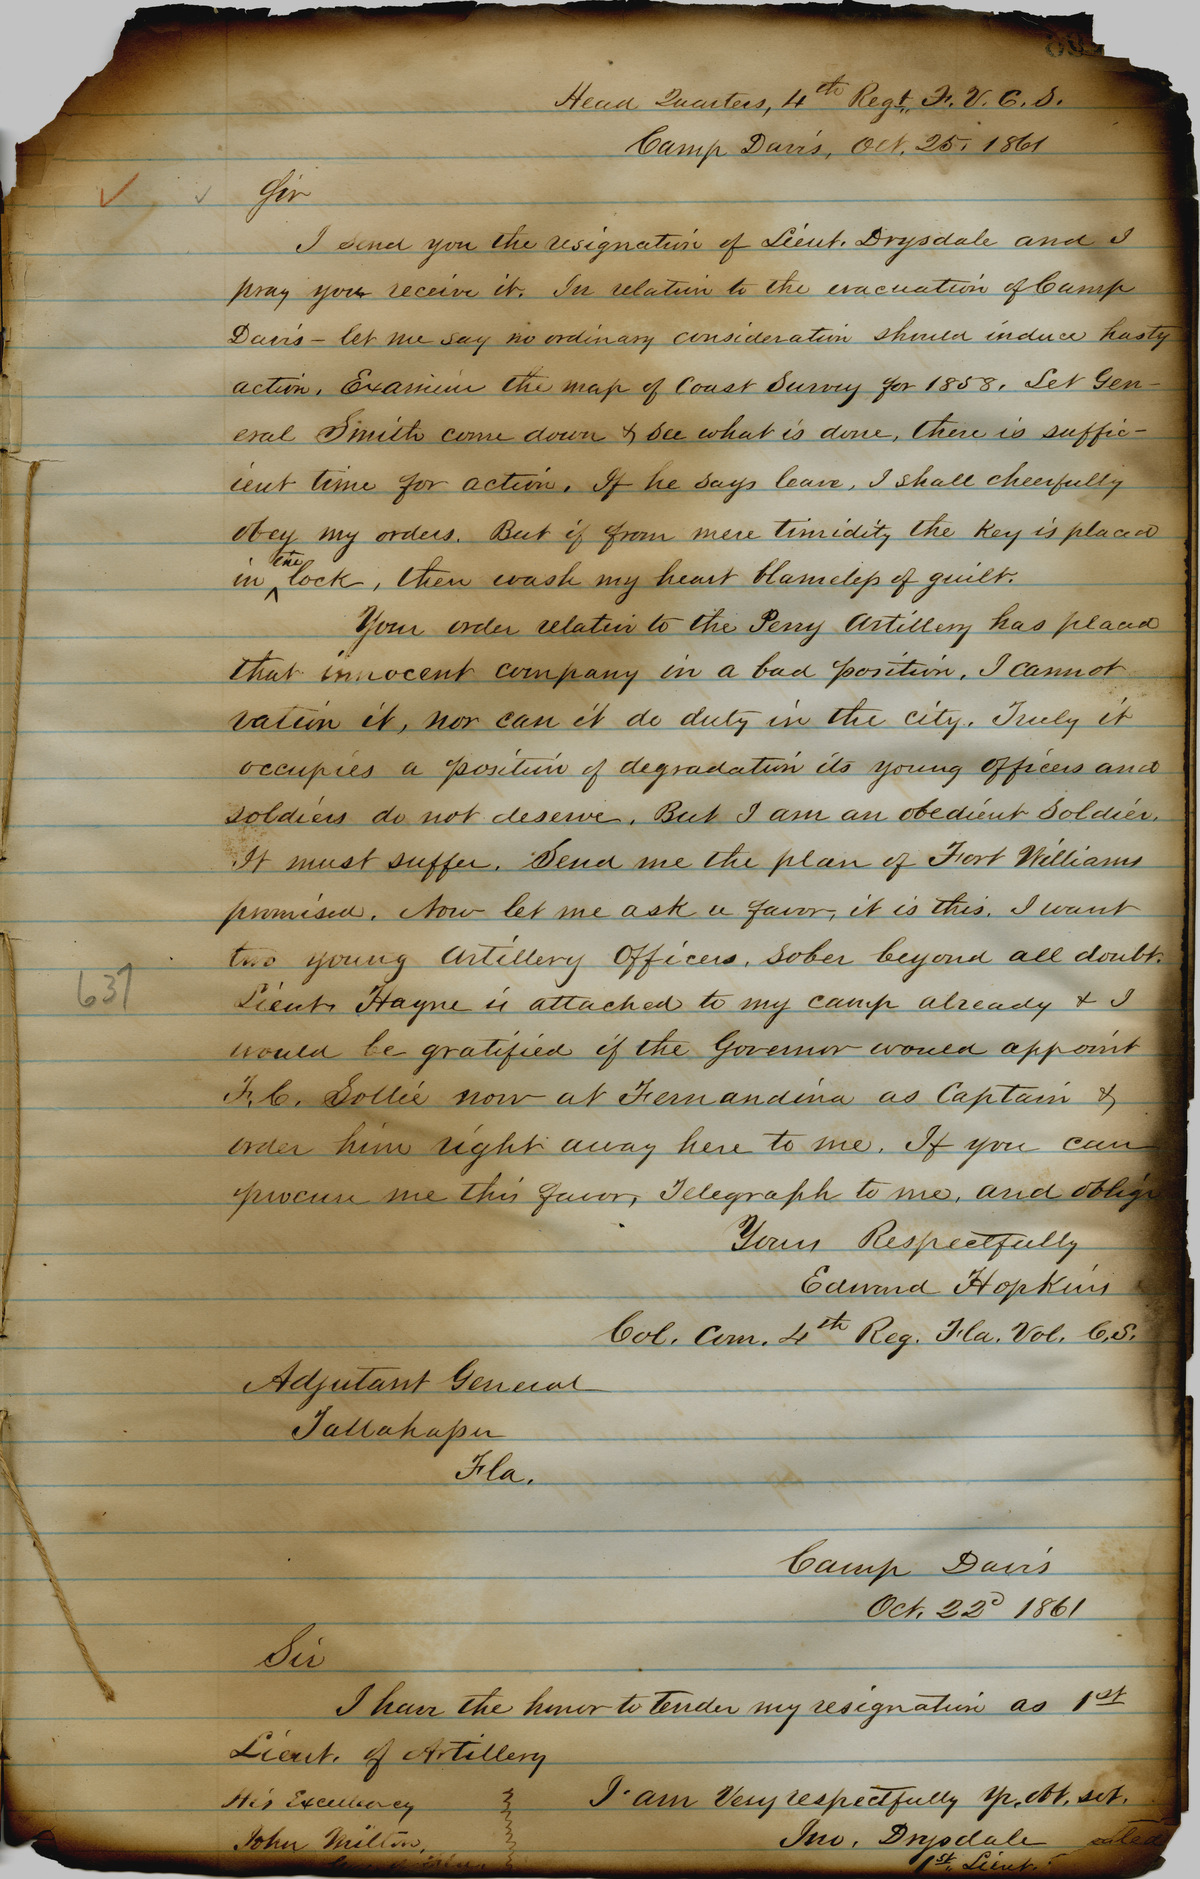 Head Quarters, 4th Regt. F. V. C. S.
Camp Davis, Oct. 25, 1861
Sir
I send you the resignation of Lieut. Drysdale and I
pray you receive it. In relation to the evacuation of Camp
Davis – let me say no ordinary consideration should induce hasty
action. Examine the map of Coast Survey for 1858. Let Gen-
eral Smith come down & see what is done, there is suffic-
ient time for action. If he says leave, I shall cheerfully
obey my orders. But if from mere timidity the key is placed
in the lock, then wash my heart blameless of guilt.
Your order relativ to the Perry Artillery has placed
that innocent company in a bad position. I cannot
ration it, nor can it do duty in the city. Truly it
occupies a position of degradation its young officers and
soldiers do not deserve. But I am an obedient Soldier.
It must suffer. Send me the plan of Fort Williams
promised. Now let me ask a favor, it is this. I want
two young Artillery Officers, sober beyond all doubt.
Lieut. Hayne is attached to my camp already & I
would be gratified if the Governor would appoint
F. C. Sollie now at Fernandina as Captain &
order him right away here to me. If you can
procure me this favor, Telegraph to me, and oblige
Yours Respectfully
Edward Hopkins
Col. Com. 4th Reg. Fla. Vol. C.S.
Adjutant General
Tallahassee
Fla.
637
Camp Davis
Oct. 22d 1861
Sir
I have the honor to tender my resignation as 1st
Lieut. of Artillery
I am Very respectfully Yr. obt. svt.
His Excellency
John Milton,
Jno. Drysdale
1st. Lieut.